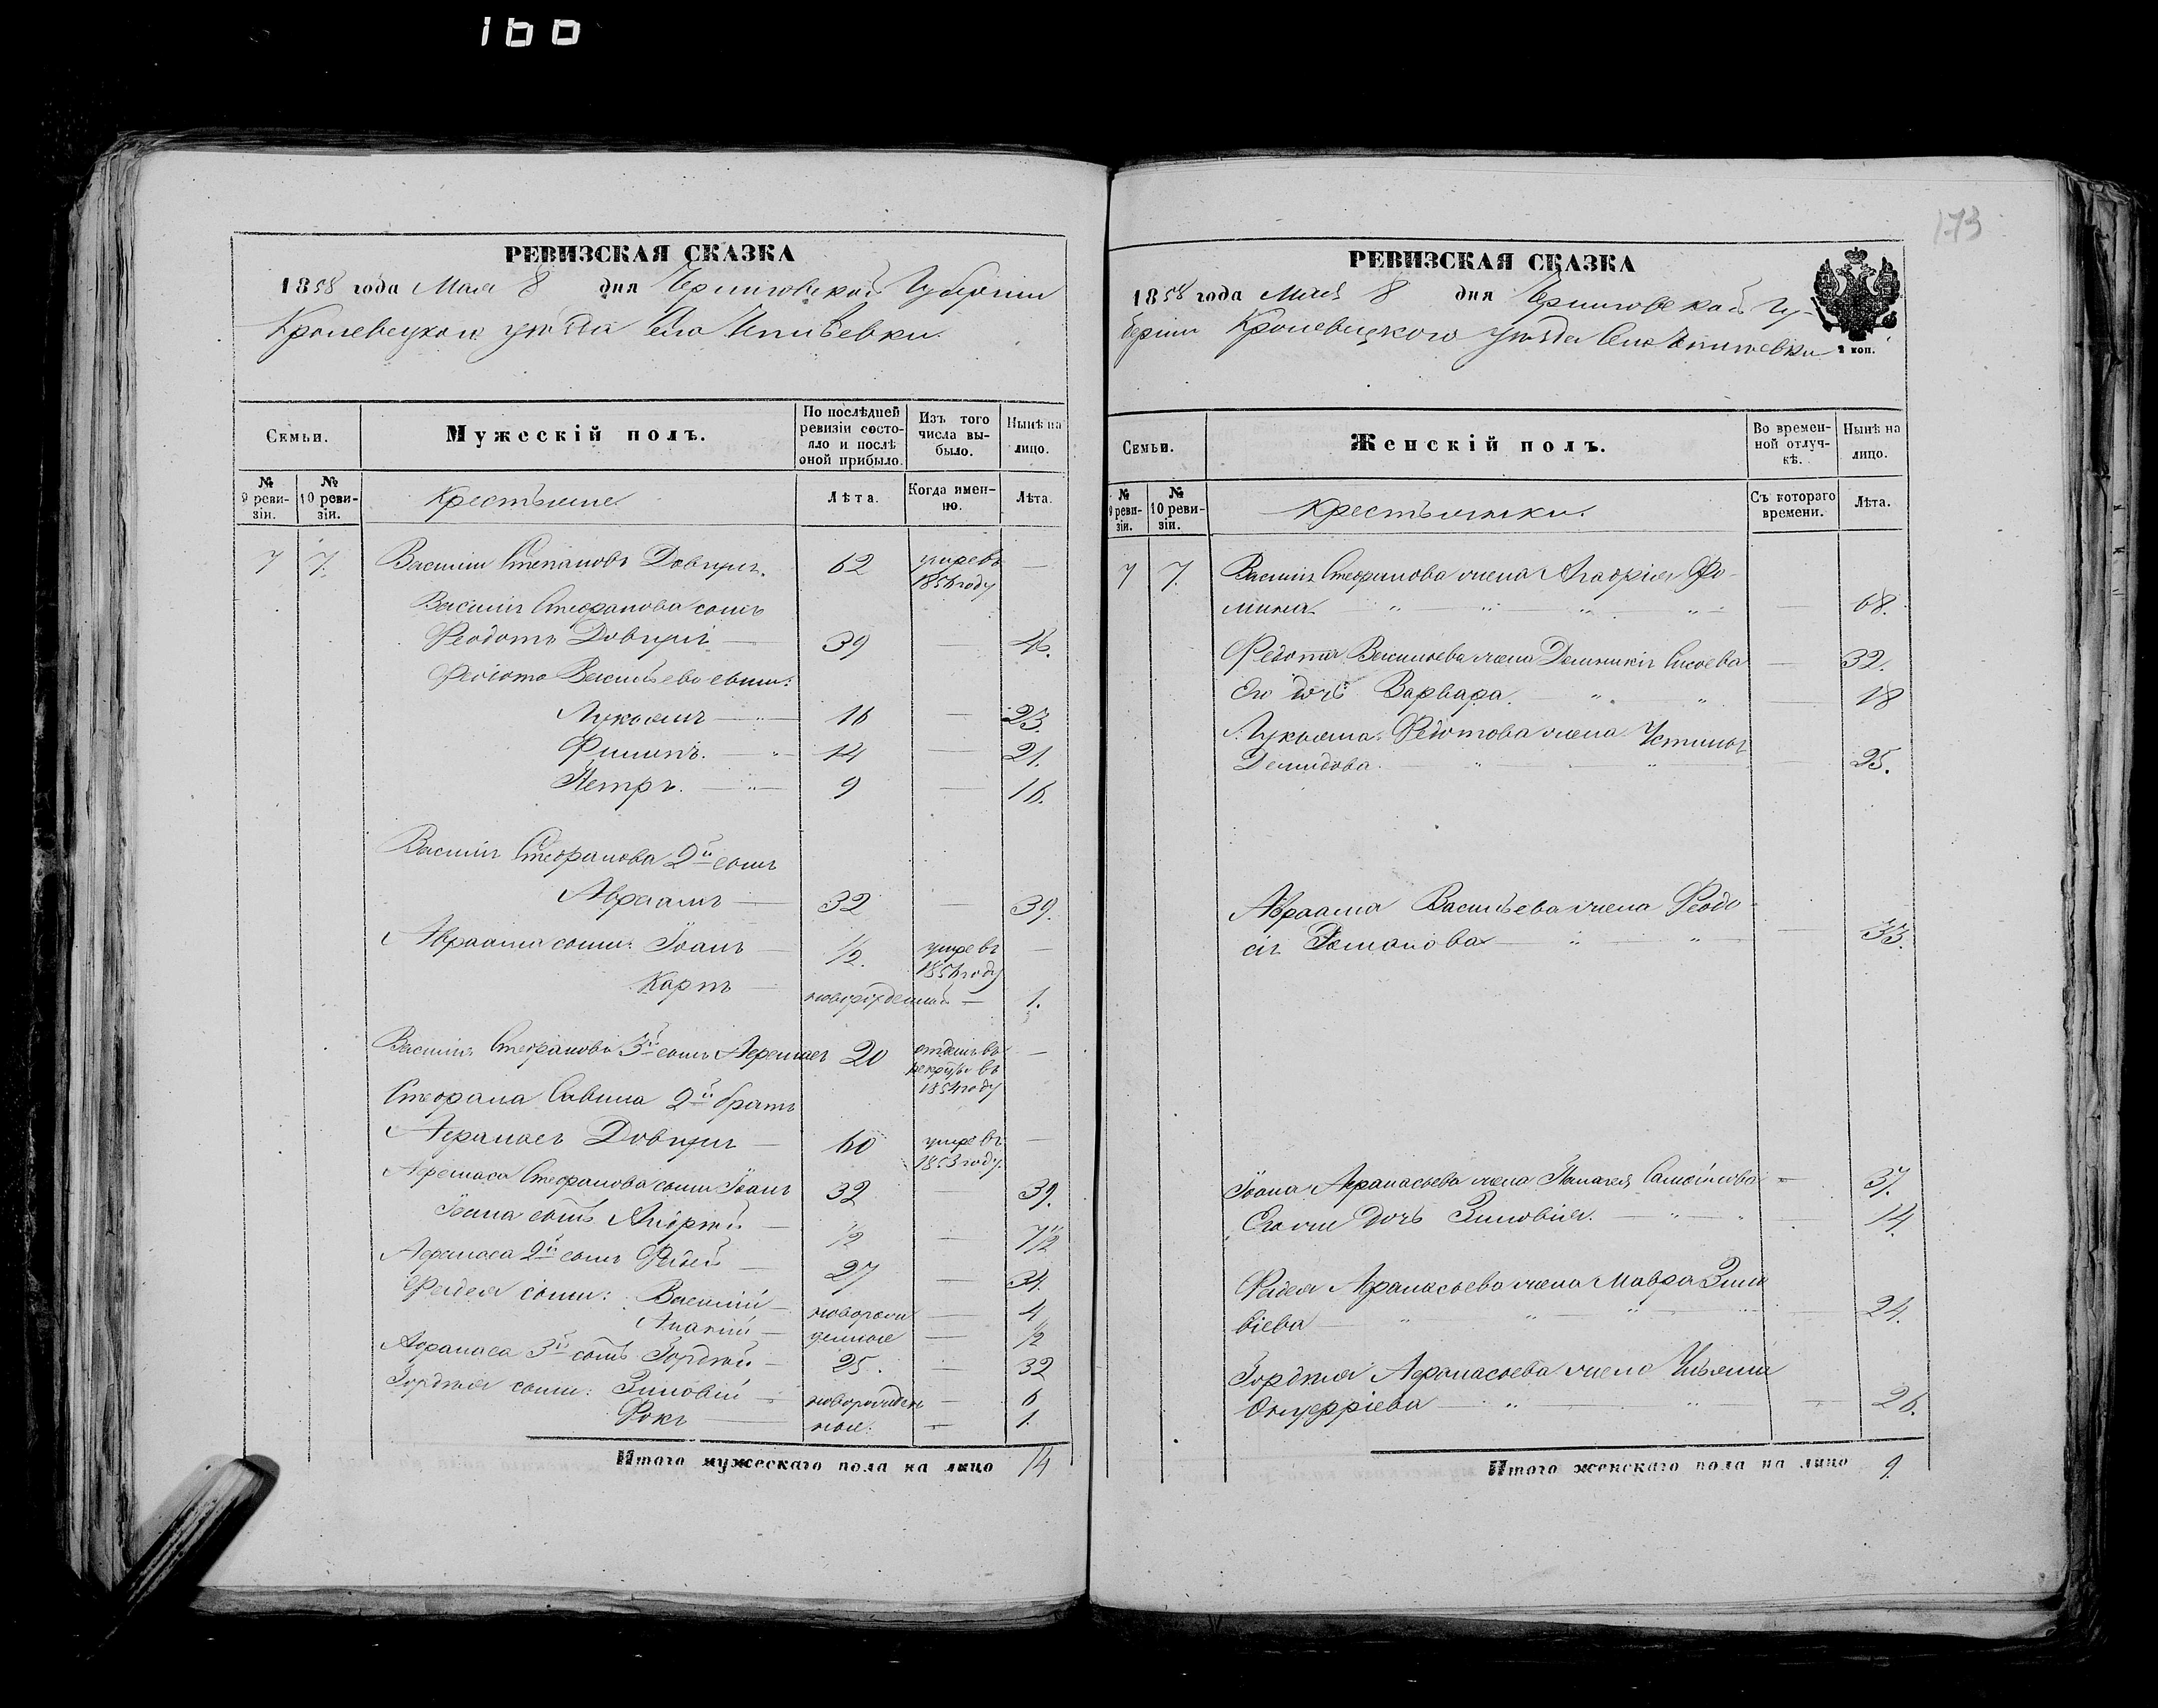 166
173
РЕВИЗСКАЯ СКАЗКА
1858 года Мая 8 дня Черниговской Губерніи
Кролевецкого уѣзда Села
Семьи.
Мужескій полъ.
По послѣдней ревизіи состояло и послѣ оной прибыло.
Изъ того числа выбыло.
Нынѣ на лицо.
№ 9 ревизіи.
№ 10 ревизіи.
Крестьяне.
Лѣта.
Когда именно.
Лѣта.
7 7. Василій Степановъ Довгуля. 62 умеръ въ 1856 году —
Василія Стефанова сынъ
Феодотъ Довгуля — 39 — 46.
Федота Васильева сыны:
Лукьянъ — 16 — 23.
Филипъ. — 14 — 21.
Петръ. — 9 — 16.
Василія Стефанова 2й сынъ
Авраамъ — 32 — 39.
Авраама сыны: Іоанъ — 1/2. умеръ въ 1856 году —
Карпъ — новорожденный — 1.
Василія Стефанова 3й сынъ 20 отданъ въ рекруты въ 1854 году —
Стефана Савина 2й братъ
Афанасъ Довгуля — 60 умеръ въ 1853 году. —
Афанаса Стефанова сынъ Іоанъ 32 — 39.
Іоана сынъ Андрей — 1/2 — 7 1/2
Афанаса 2й сынъ Фадей — 27 — 34.
Фадея сыны: Василій — новорож — 4
Ананій — денные — 1/2
Афанаса 3й сынъ Гордѣй — 25. — 32
Гордѣя сыны: Зиновій — новорожден — 6
Фокъ — ные. — 1.
Итого мужескаго пола на лицо 14
РЕВИЗСКАЯ СКАЗКА
1858 года Мая 8 дня Черниговской Гу-
берніи Кролевецкого уѣзда Села
2 коп.
Семьи.
Женскій полъ.
Во временной отлучкѣ.
Нынѣ на лицо.
№ 9 ревизіи.
№ 10 ревизіи.
Крестьянки.
Съ котораго времени.
Лѣта.
7 7. Василія Стефанова жена Агафія Фо-
мина. — 68.
Федота Васильева жена Домникія Сисоева — 32.
Его дочь Варвара. — 18
Лукьяна Федотова жена Устинья
Демидова. 25.
Авраама Васильева жена Феодо-
сія Романова — 33.
Іоана Афанасьева жена Пелагея Самойлова — 37.
Его же дочь Зиновія. — 14.
Фадея Афанасьева жена Мавра Зино
віева — 24.
Гордѣя Афанасьева жена Ульяна
Онуфріева — 26.
Итого женскаго пола на лицо 9.